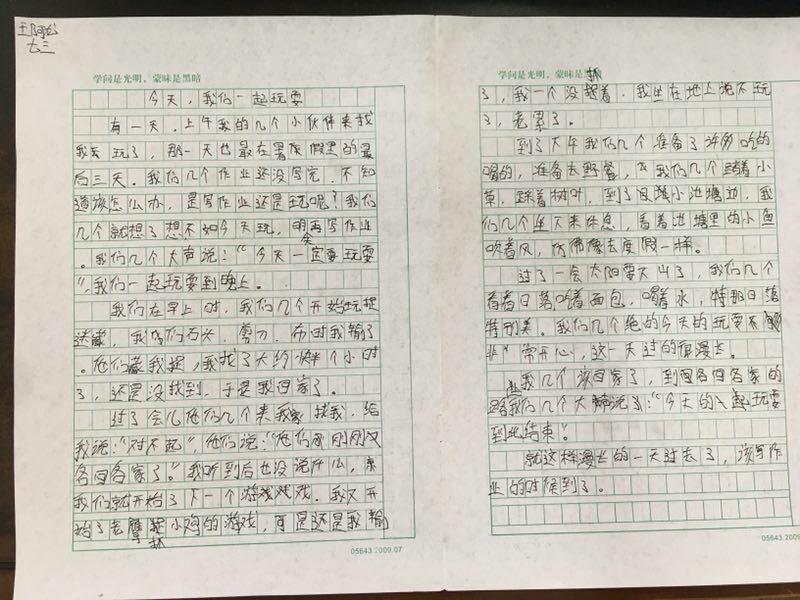 七三
学问是光明，蒙昧是黑暗
今天，我们一起玩耍
有一天，上午我的几个小伙伴来找
我去玩了，那一天也最在暑假假里的最
后三天。我们几个作业还没写完，不知
道该怎么办，是写作业还是玩呢？我们
几个就想了想不如今天玩，明天再写作业
。我们几个大声说：“今天一定要玩耍
”，我们一起玩耍到晚上。
我们在早上时，我们几个开始玩捉
迷藏，我们石头、剪刀、布时我输了
。他们藏我捉，我找了大约快半个小时
了，还是没找到，于是我回家了。
过了会儿他们几个来我家找我，给
我说：“对不起”，他们说：“他们刚刚又
各回各家了。”我听到后也没说什么，来
我们就开始了下一个游戏。我又开
始了老鹰抓小鸡的游戏，可是还是我输
05643.2009.07
学问是光明，蒙昧是黑
抓
了，我一个没捉着。我坐在地上说不玩
了，老累了。
到了下午我们几个准备了许多吃的
喝的，准备去野餐，我们几个踏着小
草，踩着树叶，到了小池塘边，我
们几个坐下来休息，看着池塘里的小鱼
吹着风，仿佛像去度假一样。
过了一会太阳要下山了，我们几个
看着日落吃着面包，喝着水，特那日落
特别美。我们几个绝的今天的玩耍不
非常开心，这一天过的很漫长。
我几个该回家了，到回各回各家的
路我们几个大喊说了：“今天的一起玩耍
到此结束”
就这样漫长的一天过去了，该写作
业的时候到了。
05643.2009